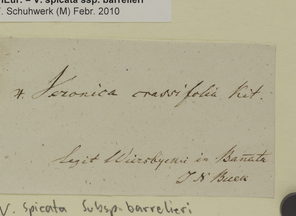 = V. spicata ssp. barrelieri
F. Schuhwerk (M) Febr. 2010
Veronica crassifolia Kit.
Legit Wierzbycki in Banata
V. spicata subsp. barrelieri